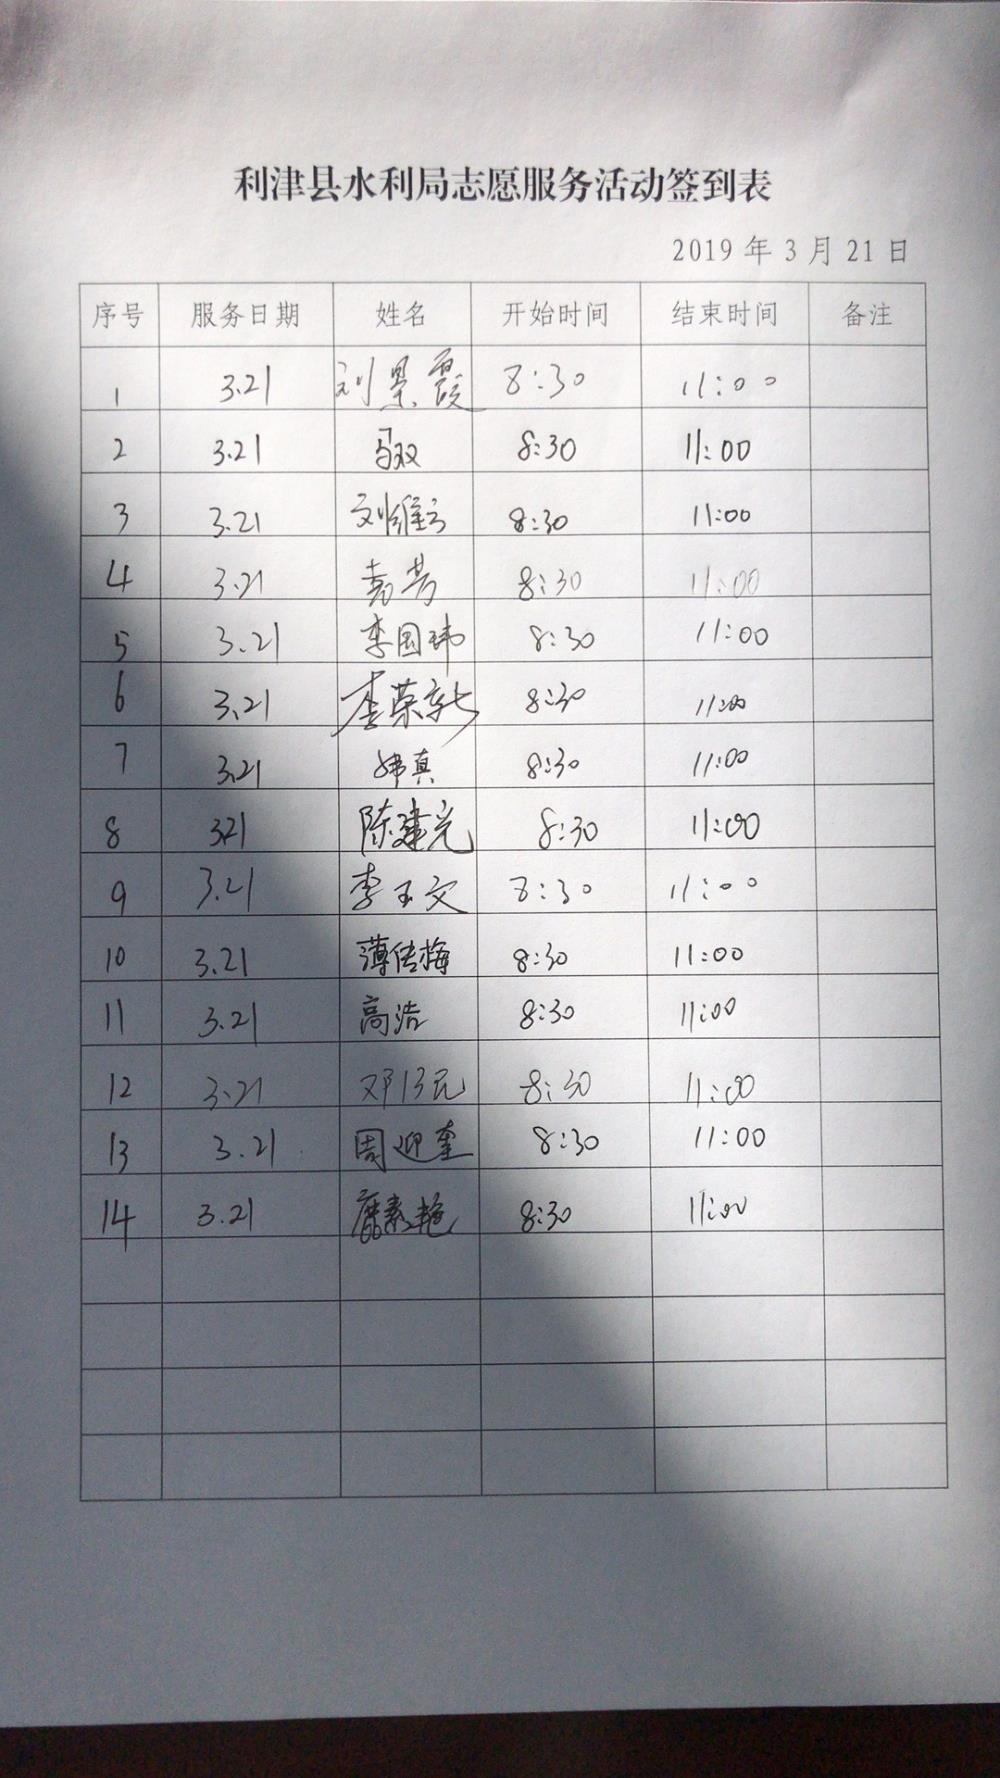 利津县水利局志愿服务活动签到表
2019 年 3 月 21 日
序号 服务日期 姓名 开始时间 结束时间 备注
1 3.21 刘景霞 8:30 11:00
2 3.21 马双 8:30 11:00
3 3.21 刘维云 8:30 11:00
4 3.21 芳 8:30 11:00
5 3.21 李国玮 8:30 11:00
6 3.21 李荣新 8:30 11:00
7 3.21 真 8:30 11:00
8 3.21 陈建光 8:30 11:00
9 3.21 李玉文 8:30 11:00
10 3.21 薄传梅 8:30 11:00
11 3.21 高洁 8:30 11:00
12 3.21 邓 8:30 11:00
13 3.21 周迎奎 8:30 11:00
14 3.21 素艳 8:30 11:00